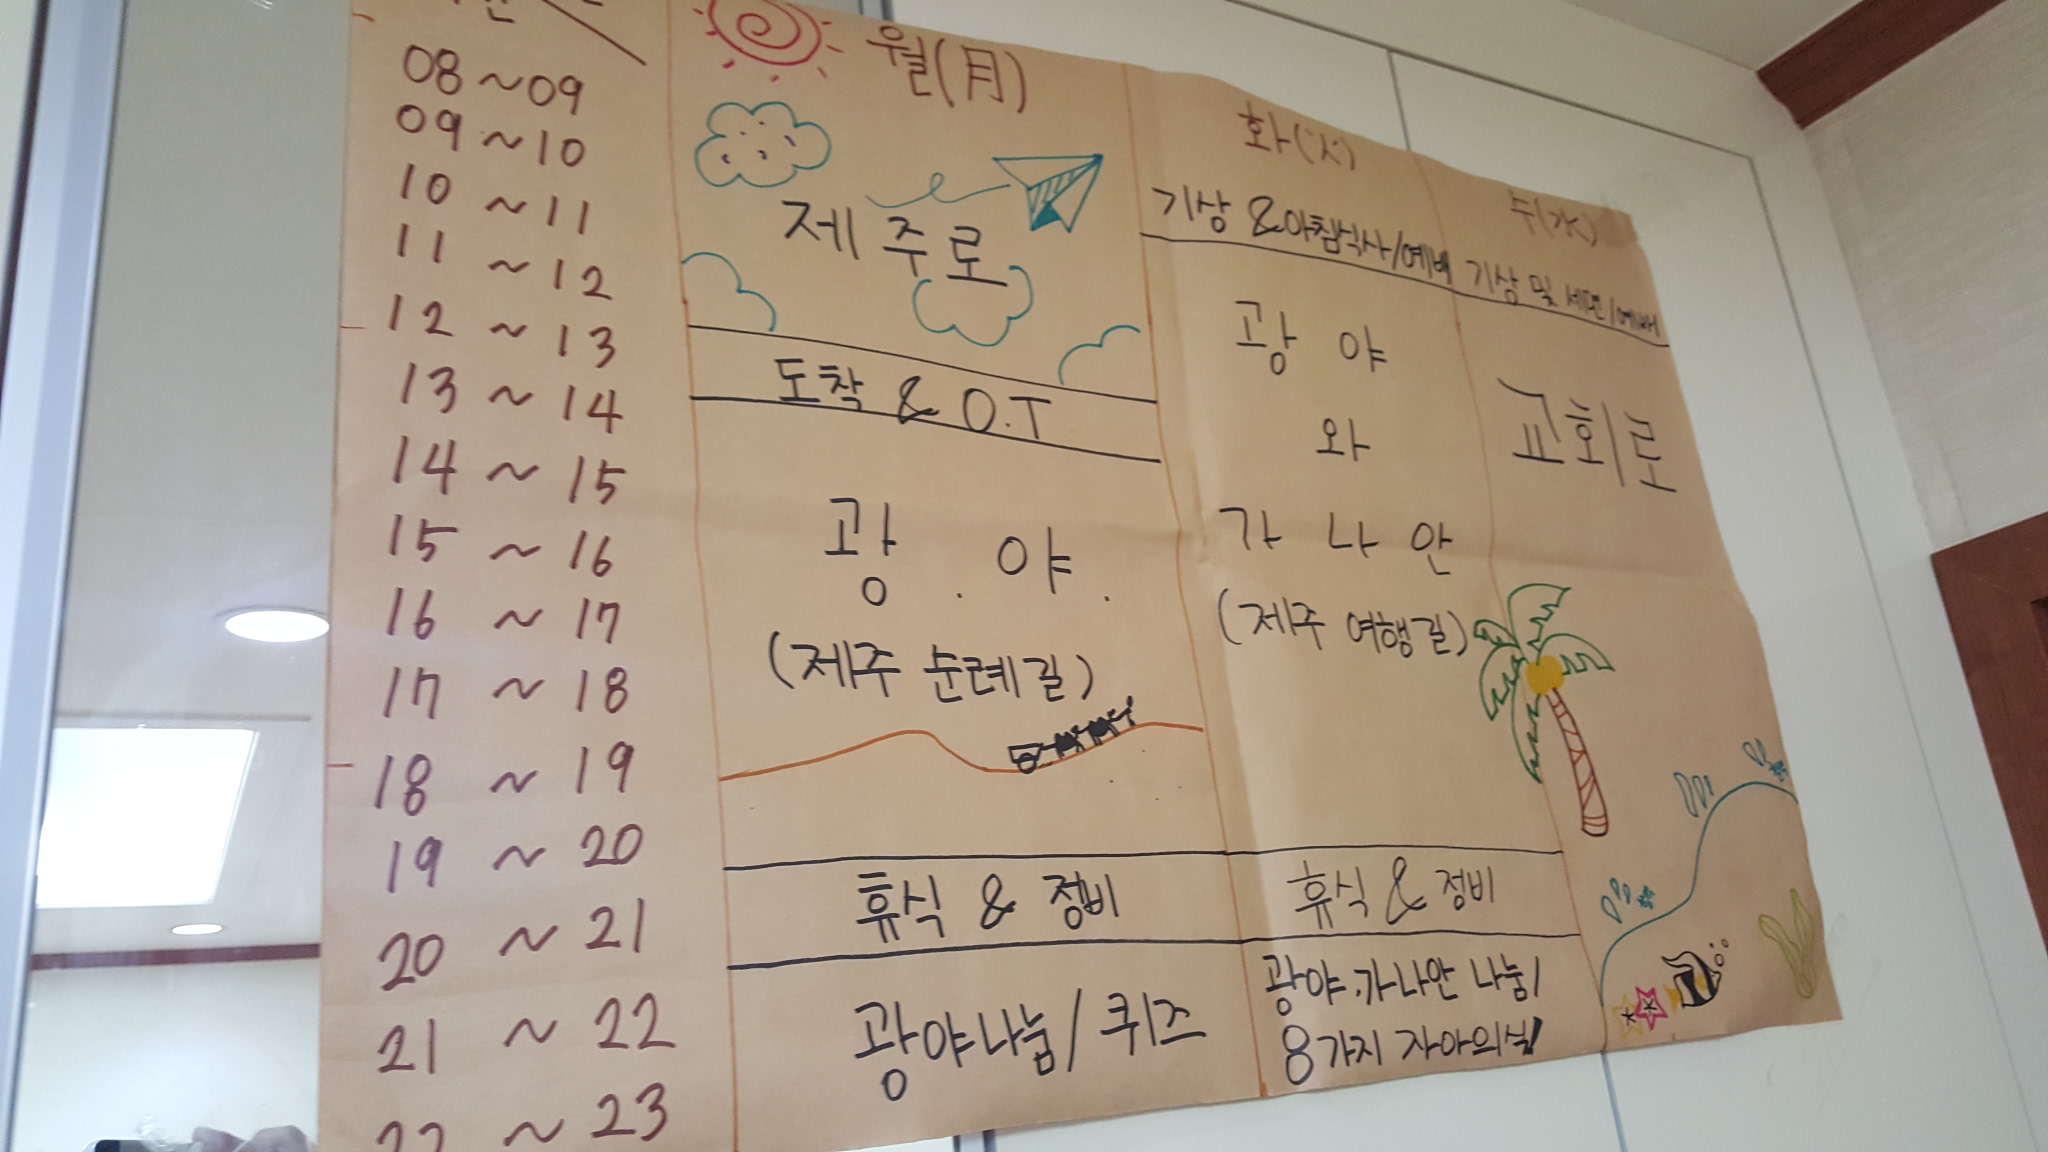 08~09
09~10
10~11
11~12
12~13
13~14
14~15
15~16
16~17
17~18
18~19
19~20
20~21
21~22
22~23
월(月)
제주로
도착 & O.T
광.야.
(제주 순례길)
휴식 & 정비
광야나눔/퀴즈
화(火)
기상 &아침식사/예배
광야
와
가나안
(제주 여행길)
휴식 & 정비
광야.가나안 나눔/
8가지 자아의식
수(水)
기상 및 세면/예배
교회로